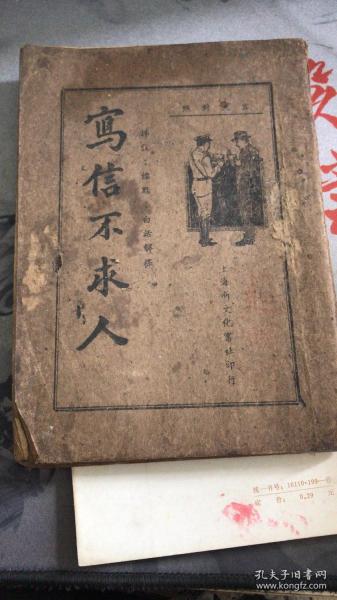 言文對照
寫信不求人
詳註·標點·白話解釋
上海新文化書社印行
統一书号：10110·199
定价：0.29 元
孔夫子旧书网